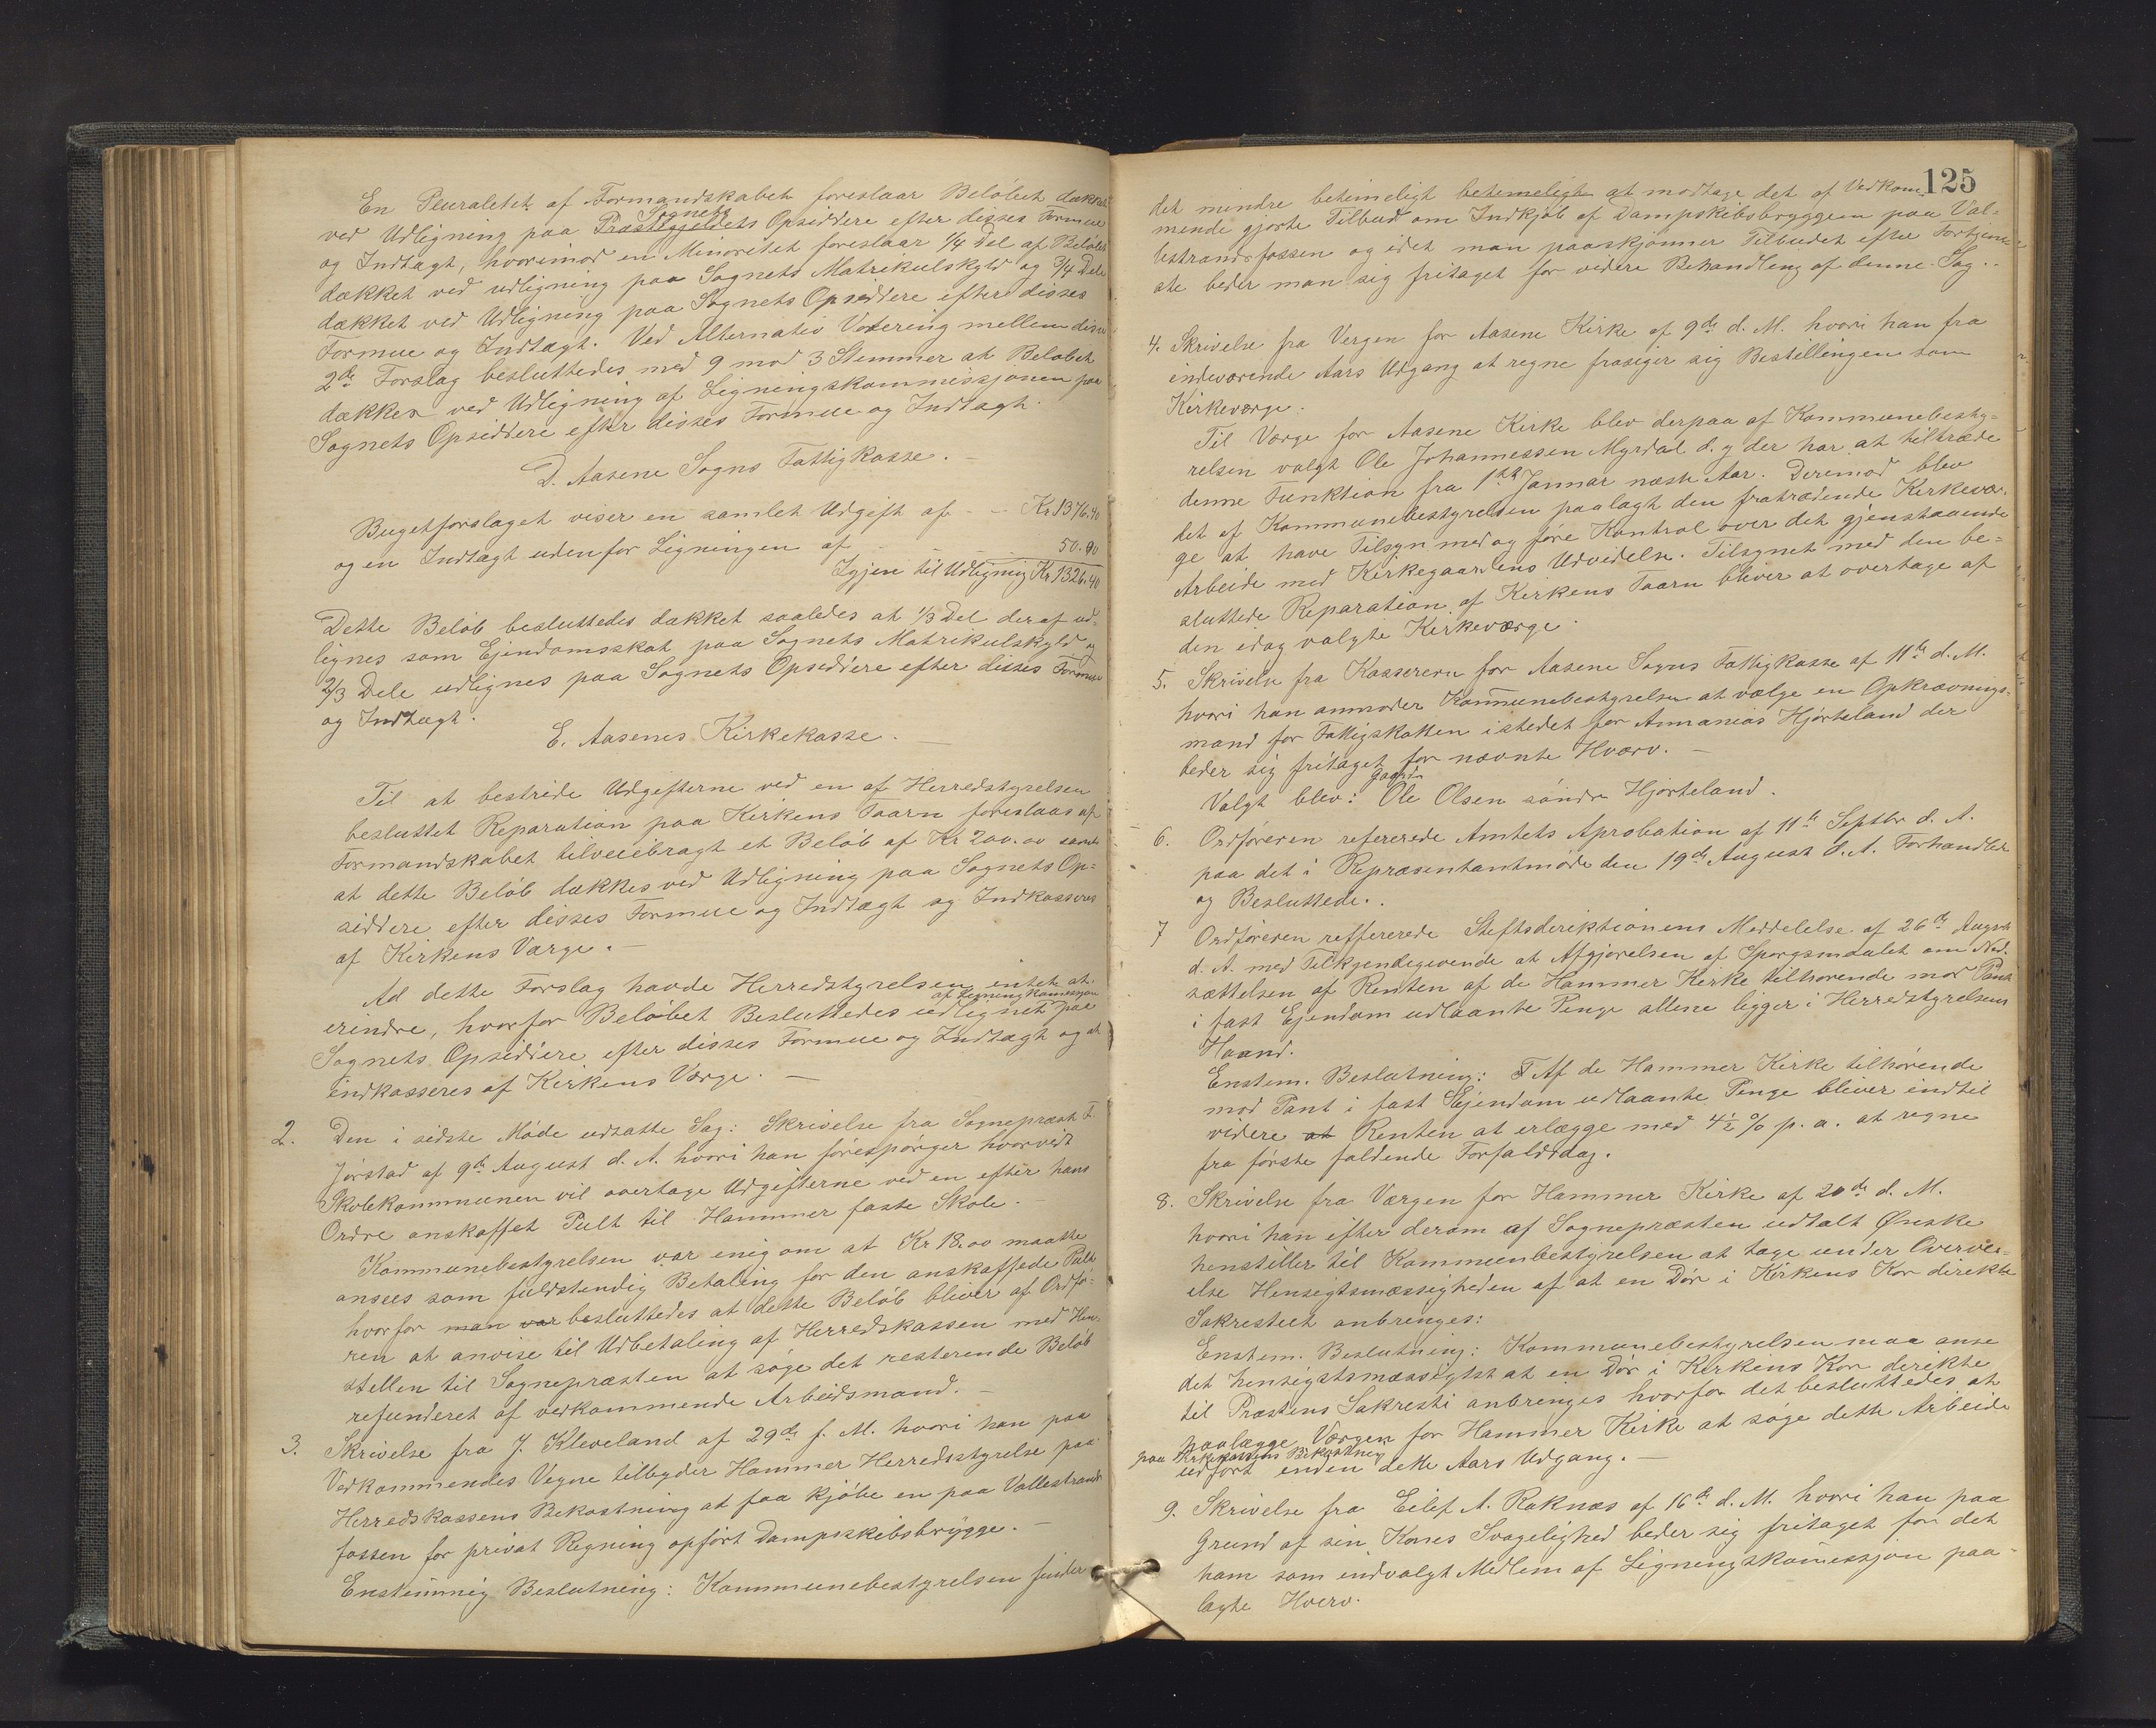 En Pluralitet af Formandskabet foreslaar Beløbet dækket
ved Udligning paa Sognets Præstegjeldets Opsiddere efter disses Formue
og Indtægt, hvorimod en Minoritet foreslaar 1/4 Del af Beløbet
dækket ved udligning paa Sognets Matrikulskyld og 3/4 Dele
dækket ved Udligning paa Sognets Opsiddere efter disses
Formue og Indtægt. Ved Alternativ Votering mellem disse
2de Forslag besluttedes med 9 mod 3 Stemmer at Beløbet
dækkes ved Udligning af Ligningskommissjonen paa
Sognets Opsiddere efter disses Formue og Indtægt.
D. Aasene Sogns Fattigkasse.
Bugetforslaget viser en samlet Udgift af - - Kr 1376.40
og en Indtægt udenfor Ligningen af - - - 50.00
Igjen til Udligning Kr 1326.40
Dette Beløb besluttedes dækket saaledes at 1/3 Del deraf ud-
lignes som Ejendomsskat paa Sognets Matrikulskyld og
2/3 Dele udlignes paa Sognets Opsiddere efter disses Formue
og Indtægt.
E. Aasenes Kirkekasse.
Til at bestride Udgifterne ved en af Herredstyrelsen
besluttet Reparation paa Kirkens Taarn foreslaas af
Formandskabet tilveiebragt et Beløb af Kr 200.00 samt
at dette Beløb dækkes ved Udligning paa Sognets Op-
siddere efter disses Formue og Indtægt og Indkasseres
af Kirkens Værge. -
Ad dette Forslag havde Herredstyrelsen intet at
erindre, hvorfor Beløbet Besluttedes udlignet af Ligningskomissjon paa
Sognets Opsiddere efter disses Formue og Indtægt og at
indkasseres af Kirkens Værge. -
2. Den i sidste Møde udsatte Sag: Skrivelse fra Sognepræst F.
Jørstad af 9de August d. A. hvori han forespørger hvorvidt
Skolekommunen vil overtage Udgifterne ved en efter hans
Ordre anskaffet Pult til Hammer faste Skole.
Kommunebestyrelsen var enig om at Kr 18.00 maatte
ansees som fuldstendig Betaling for den anskaffede Pult
hvorfor man var besluttedes at dette Beløb bliver af Ordfø-
ren at anvise til Udbetaling af Herredskassen med Hen-
stillen til Sognepræsten at søge det resterende Beløb
refunderet af vedkommende Arbeidsmand. -
3. Skrivelse fra J. Kleveland af 29de f. M. hvori han paa
Vedkommendes Vegne tilbyder Hammer Herredsstyrelse paa
Herredskassens Bekostning at faa kjøbe en paa Vallestrands
fossen for privat Regning opført Dampskibsbrygge. -
Enstemmig Beslutning: Kommunebestyrelsen finder
125
det mindre beteimeligt betemeligt at modtage det af Vedkom-
mende gjorte Tilbud om Indkjøb af Dampskibsbryggen paa Val-
lestrandsfossen og idet man paaskjønner Tilbudet efter Fortjene-
ste beder man sig fritaget for videre Behandling af denne Sag.
4. Skrivelse fra Vergen for Aasene Kirke af 9de d. M. hvori han fra
indeværende Aars Udgang at regne frasiger sig Bestillingen som
Kirkeværge.
Til Værge for Aasene Kirke blev derpaa af Kommunebesty-
relsen valgt Ole Johannessen Myrdal d. y der har at tiltræde
denne Funktion fra 1ste Januar næste Aar. Derimod blev
det af Kommunebestyrelsen paalagt den fratrædende Kirkevær-
ge at have Tilsyn med og føre Kontrol over det gjenstaaende
Arbeide med Kirkegaardens Udvidelse. Tilsynet med den be-
sluttede Reparation af Kirkens Taarn bliver at overtage af
den idag valgte Kirkeværge.
5. Skrivelse fra Kassereren for Aasene Sogns Fattigkasse af 11te d. M.
hvori han anmoder Kommunebestyrelsen at vælge en Opkrævnings-
mand for Fattigskatten istedet for Annanias Hjorteland der
beder sig fritaget for nævnte Hværv. -
Valgt blev: Gaard. Ole Olsen søndre Hjorteland.
6. Ordføreren refererede Amtets Aprobation af 11te Septbr d. A.
paa det i Repræsentantmøde den 19de August d. A. Forhandlede
og Besluttede.
7 Ordføreren reffererede Stiftsdirektionens Meddelelse af 26de August
d. A. med Tilkjendegivende at Afgjørelsen af Spørgsmaalet om Ned-
sættelsen af Renten af de Hammer Kirke tilhørende mod Pant
i fast Ejendom udlaante Penge allene ligger i Herredstyrelsens
Haand.
Enstem. Beslutning: Af de Hammer Kirke tilhørende
mod Pant i fast Ejendom udlaante Penge bliver indtil
videre at Renten at erlægge med 4 1/2 % p. a. at regne
fra første faldende Forfaldsdag.
8. Skrivelse fra Værgen for Hammer Kirke af 20de d. M.
hvori han efter derom af Sognepræsten udtalt Ønske
henstiller til Kommunbestyrelsen at tage under Overvei-
else Hensigtsmæssigheden af at en Dør i Kirkens Kor direkte
Sakristeit anbringes:
Enstem. Beslutning: Kommunebestyrelsen maa anse
det hensigstsmæssigtst at en Dør i Kirkens Kor direkte
til Præstens Sakristi anbringes hvorfor det besluttedes at
paalægge Værgen for Hammer Kirke at søge dette Arbeide
paa Kirkekassens Bekostning
udført inden dette Aars Udgang. -
9. Skrivelse fra Eilef A. Raknæs af 16de d. M. hvori han paa
Grund af sin Kones Svagelighed beder sig fritaget for det
ham som indvalgt Medlem af Ligningskomissjon paa-
lagte Hverv.